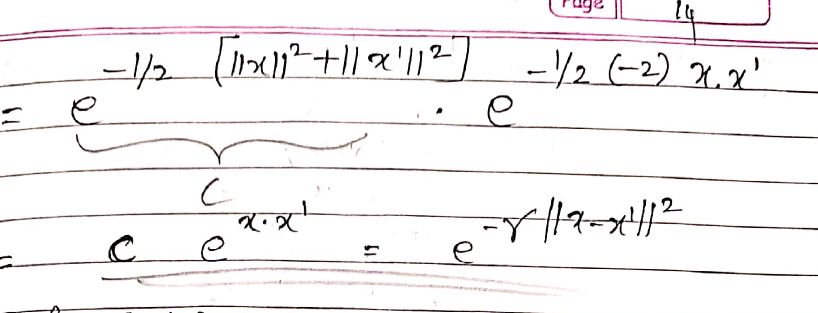 Page 14
= e^{-1/2 [||x||²+||x'||²]} . e^{-1/2 (-2) x.x'}
C
= c e^{x.x'} = e^{-γ||x-x'||²}